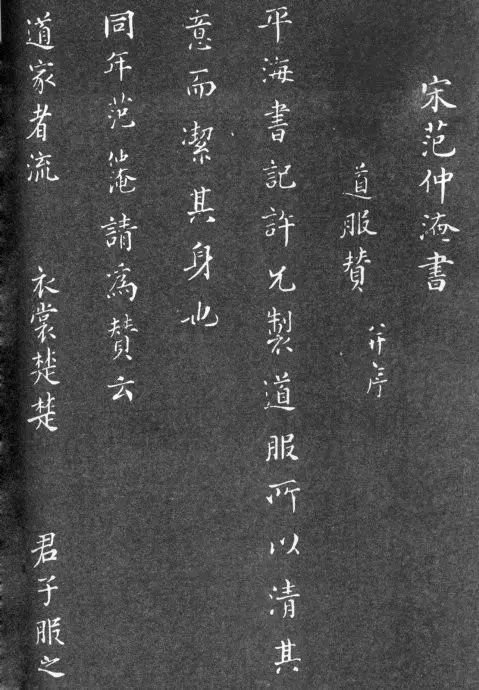 宋范仲淹書
道服賛 并序
平海書記許兄製道服所以清其
意而潔其身也
同年范仲淹請為賛云
道家者流 衣裳楚楚 君子服之